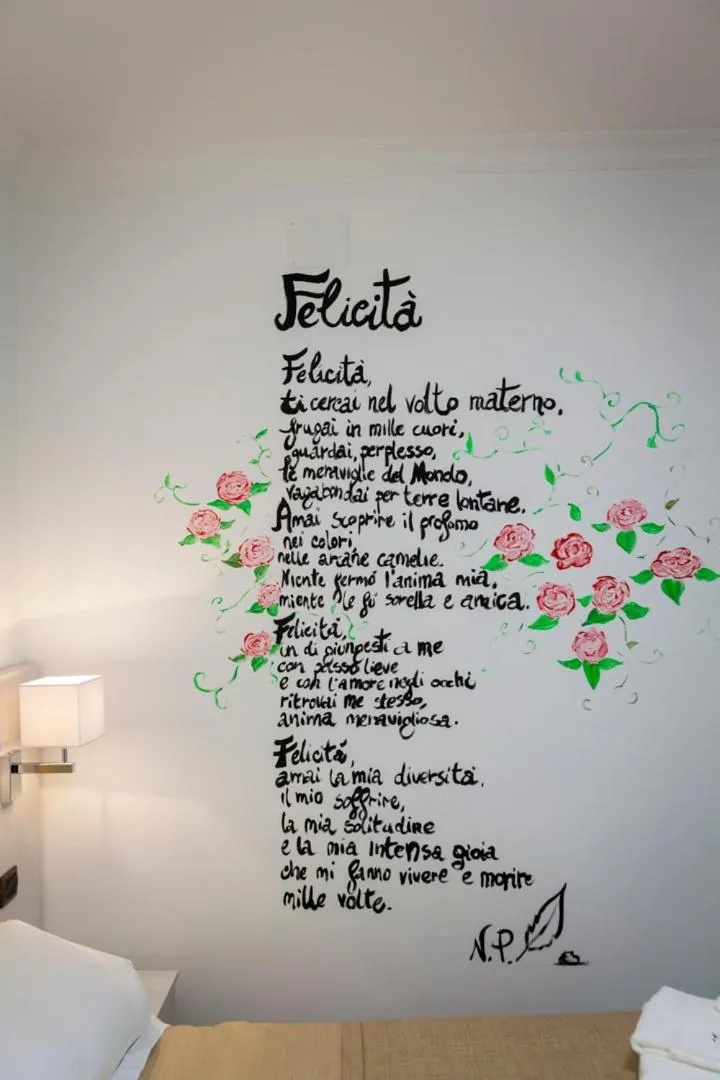 Felicità
Felicità,
ti cercai nel volto materno,
frugai in mille cuori,
guardai, perplesso,
le meraviglie del Mondo,
vagabondai per terre lontane.
Amai scoprire il profumo
nei colori
nelle arcane camelie.
Niente fermò l'anima mia,
niente le fu sorella e amica.
Felicità,
un dì giungesti a me
con passo lieve
e con l'amore negli occhi
ritrovai me stesso,
anima meravigliosa.
Felicità,
amai la mia diversità,
il mio soffrire,
la mia solitudine
e la mia intensa gioia
che mi fanno vivere e morire
mille volte.
N.P.